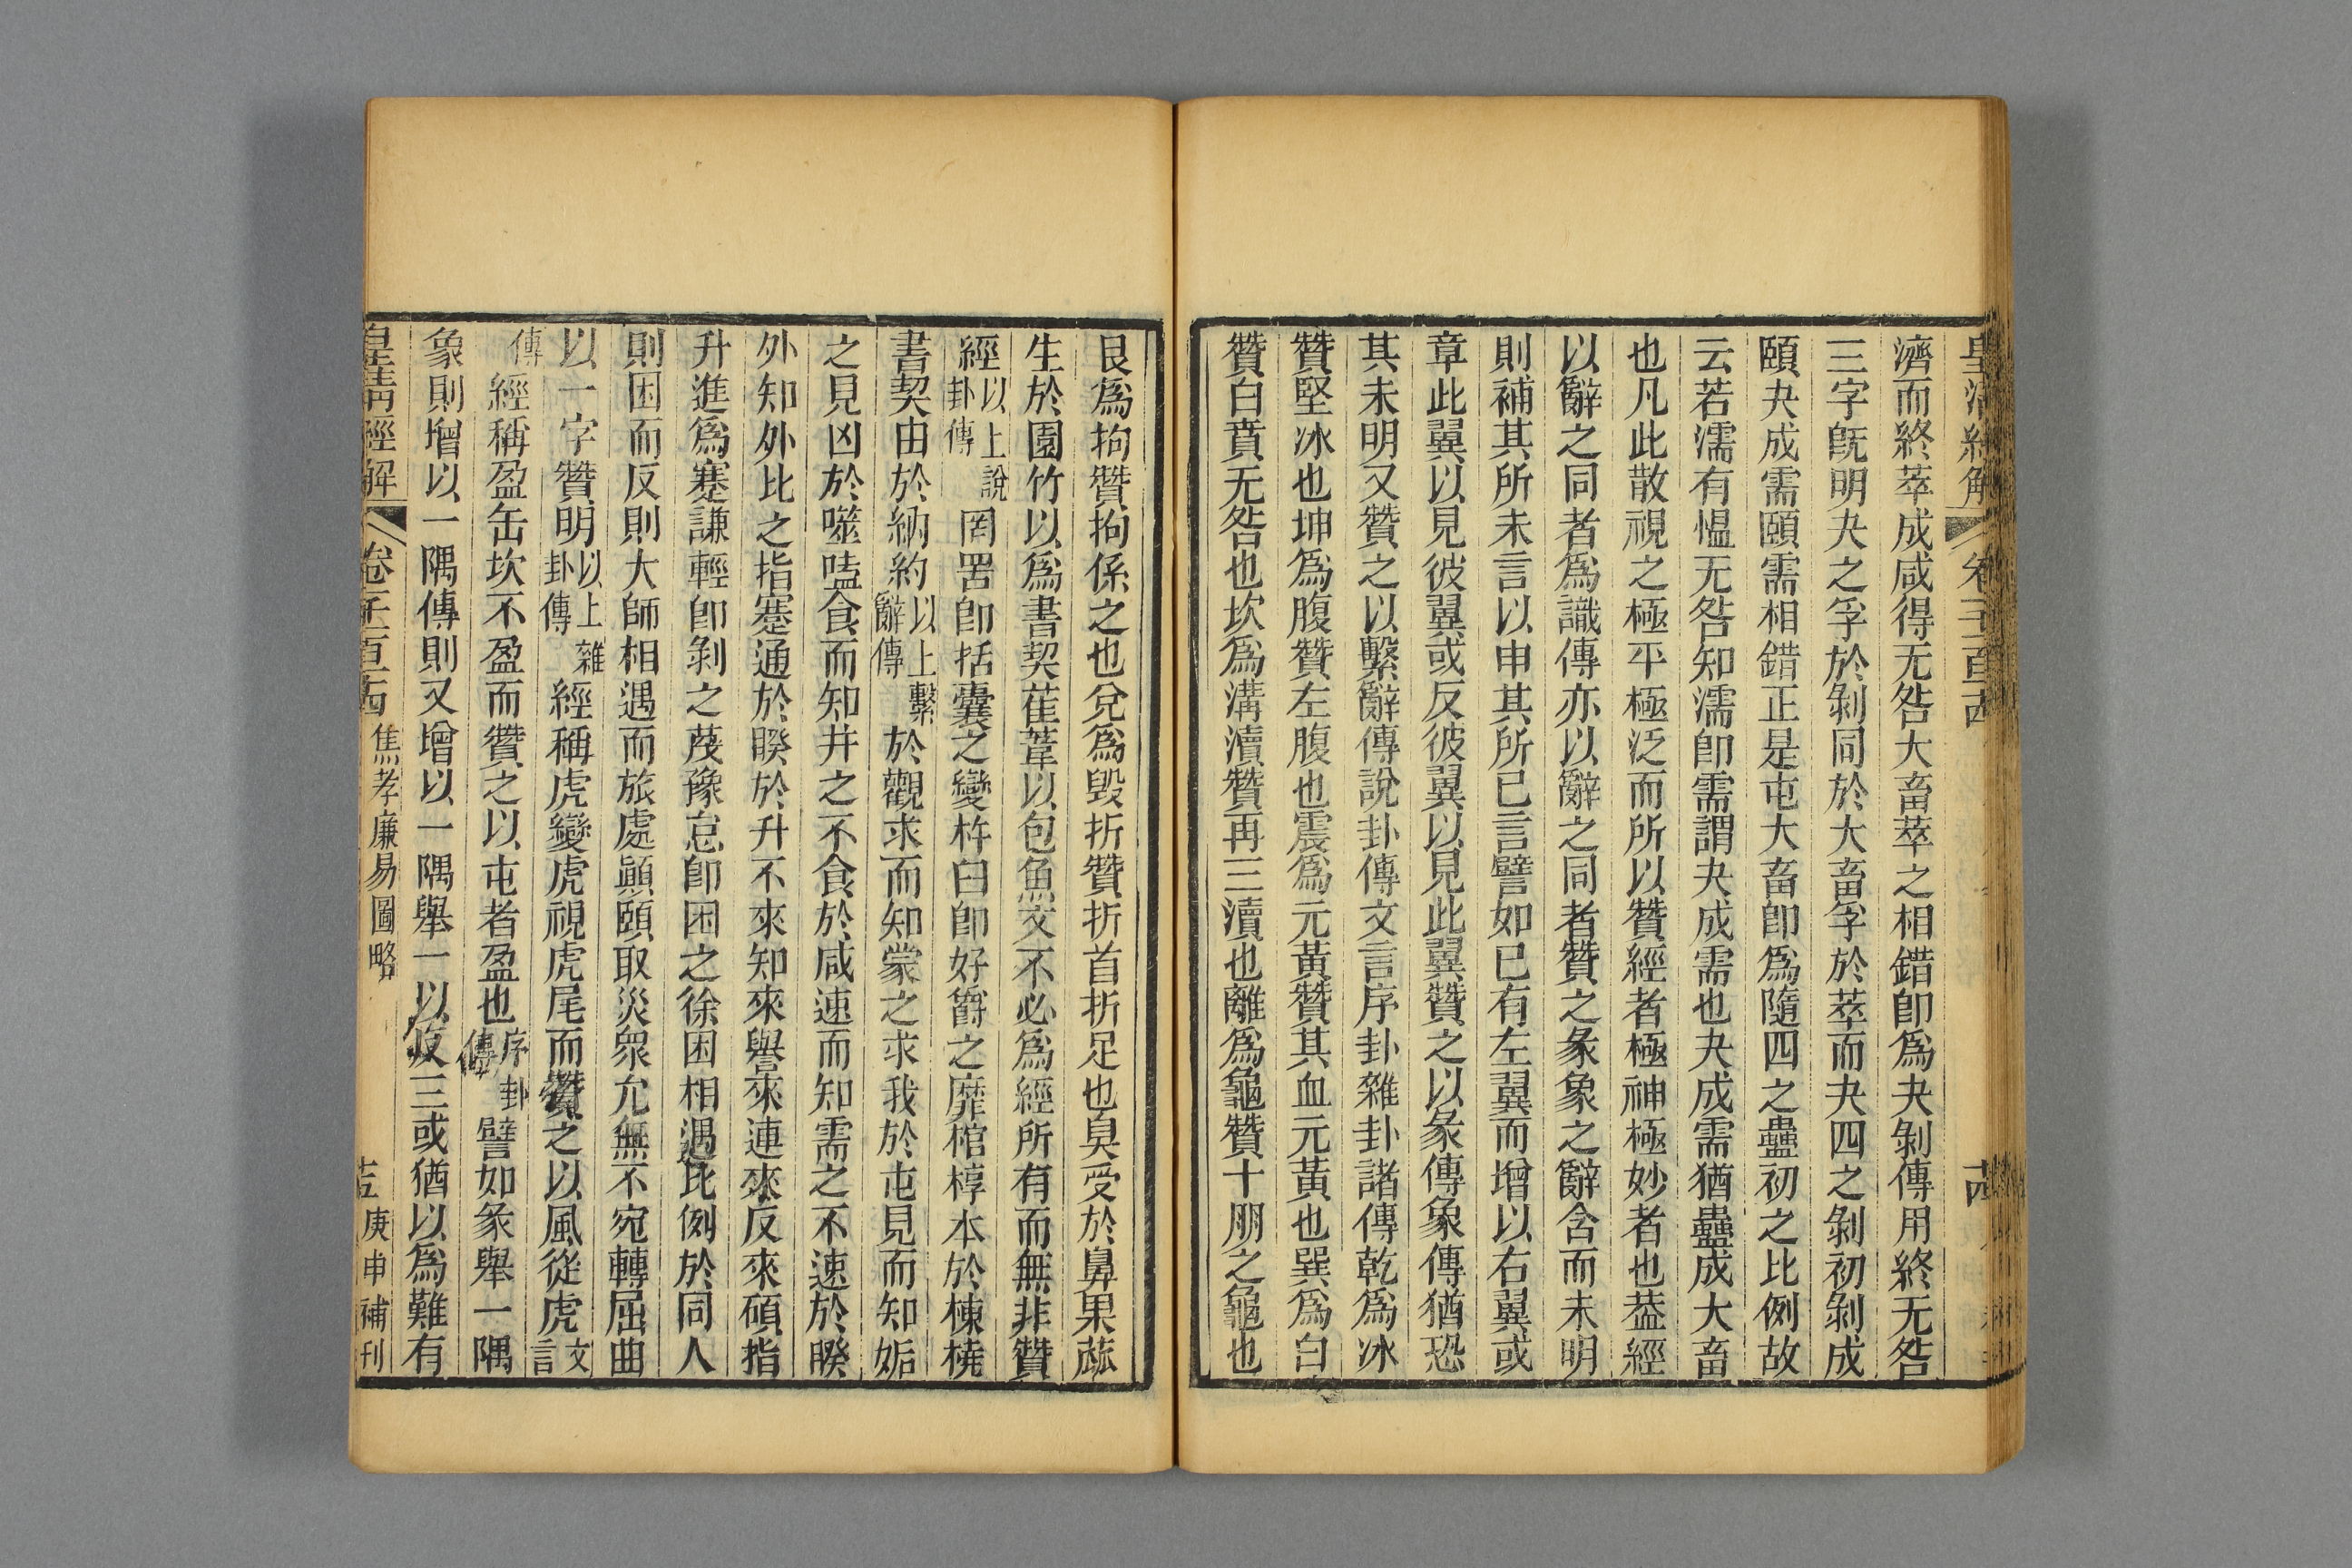 皇清經解
卷一千一百十四
十四
濟而終萃成咸得无咎大畜萃之相錯卽爲夬剝傳用終无咎
三字旣明夬之孚於剝同於大畜孚於萃而夬四之剝初剝成
頤夬成需頤需相錯正是屯大畜卽爲隨四之蠱初之比例故
云若濡有慍无咎知濡卽需謂夬成需也夬成需猶蠱成大畜
也凡此散視之極平極泛而所以贊經者極神極妙者也葢經
以辭之同者爲識傳亦以辭之同者贊之彖象之辭含而未明
則補其所未言以申其所已言譬如已有左翼而增以右翼或
章此翼以見彼翼或反彼翼以見此翼贊之以彖傳象傳猶恐
其未明又贊之以繫辭傳說卦傳文言序卦雜卦諸傳乾爲冰
贊堅冰也坤爲腹贊左腹也震爲元黃贊其血元黃也巽爲白
贊白賁无咎也坎爲溝瀆贊再三瀆也離爲龜贊十朋之龜也
艮爲拘贊拘係之也兌爲毀折贊折首折足也臭受於鼻果蓏
生於園竹以爲書契萑葦以包魚文不必爲經所有而無非贊
經以上說卦傳罔罟卽括囊之變杵臼卽好爵之靡棺椁本於棟橈
書契由於納約以上繫辭傳於觀求而知蒙之求我於屯見而知姤
之見凶於噬嗑食而知井之不食於咸速而知需之不速於睽
外知外比之指蹇通於睽於升不來知來譽來連來反來碩指
升進爲蹇謙輕卽剝之蔑豫怠卽困之徐困相遇比例於同人
則困而反則大師相遇而旅處顚頤取災眾允無不宛轉屈曲
以一字贊明以上雜卦傳經稱虎變虎視虎尾而贊之以風從虎文言
傳經稱盈缶坎不盈而贊之以屯者盈也序卦傳譬如彖舉一隅
象則增以一隅傳則又增以一隅舉一以反三或猶以爲難有
皇清經解
卷一千一百十四
焦孝廉易圖略
十五
庚申補刊